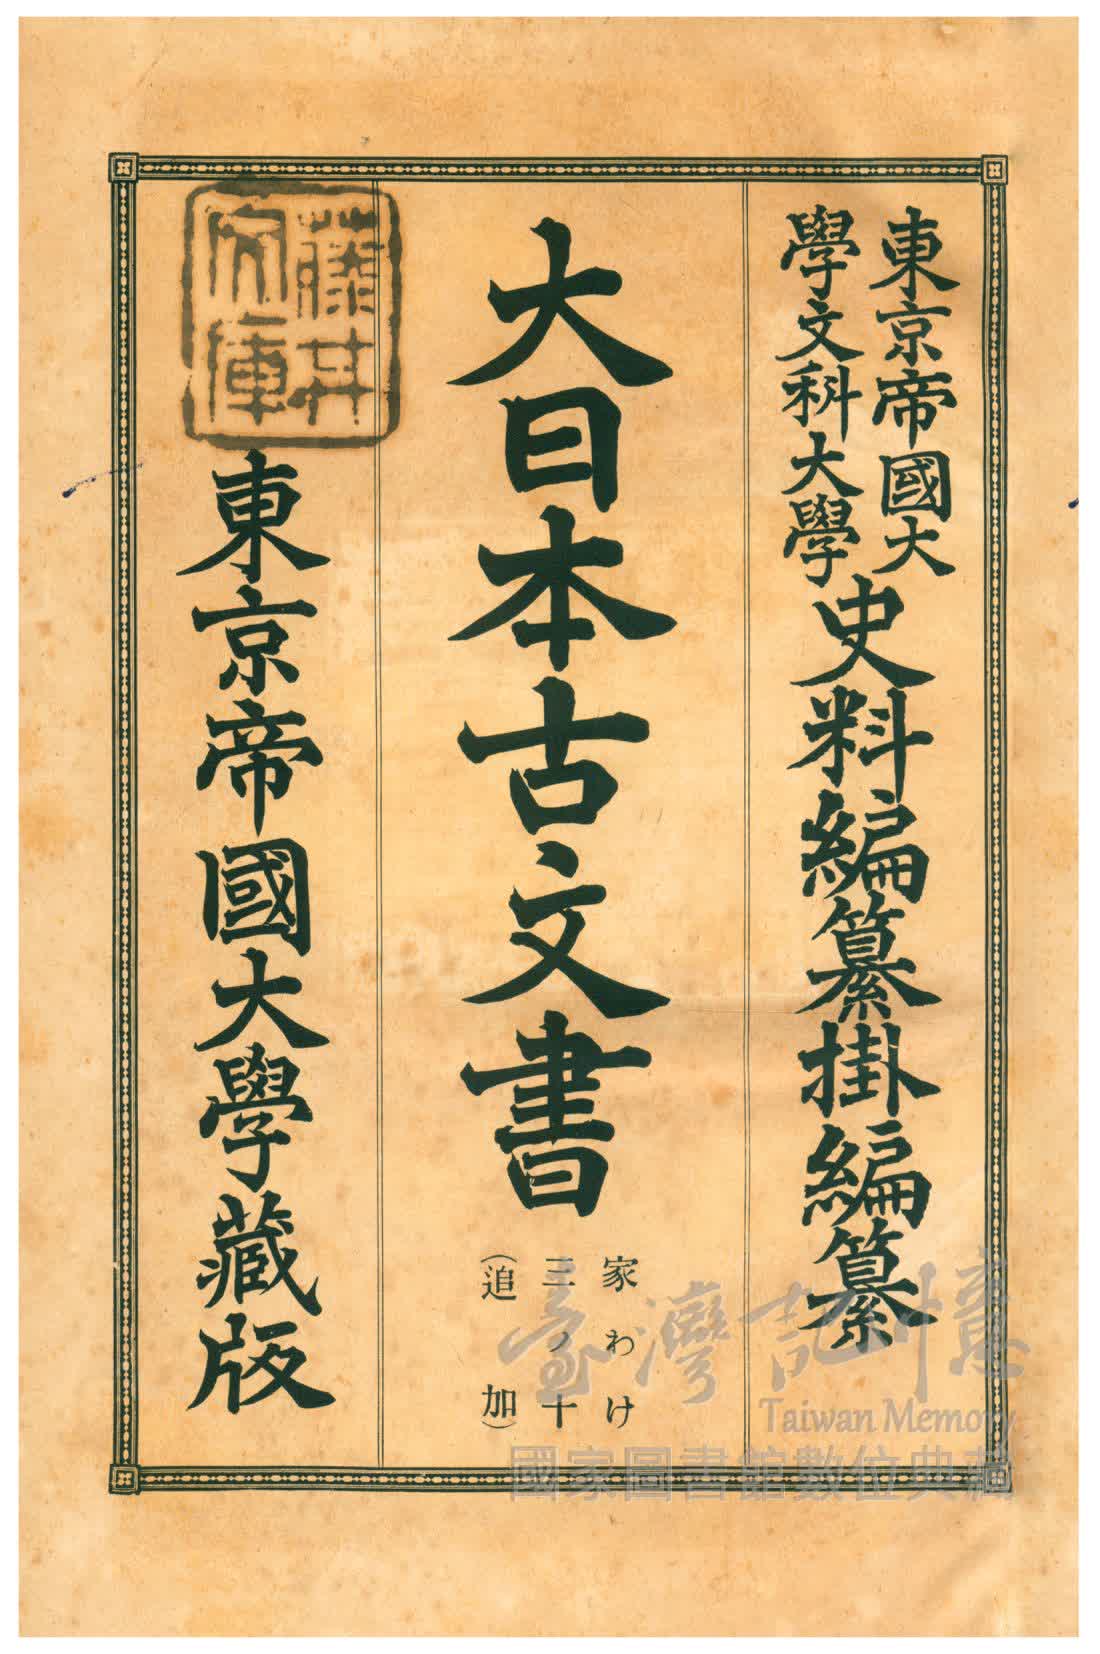 東京帝國大
學文科大學
史料編纂掛編纂
大日本古文書
家わけ
三ノ十
(追加)
藤井
文庫
東京帝國大學藏版
臺灣記憶
Taiwan Memory
國家圖書館數位典藏